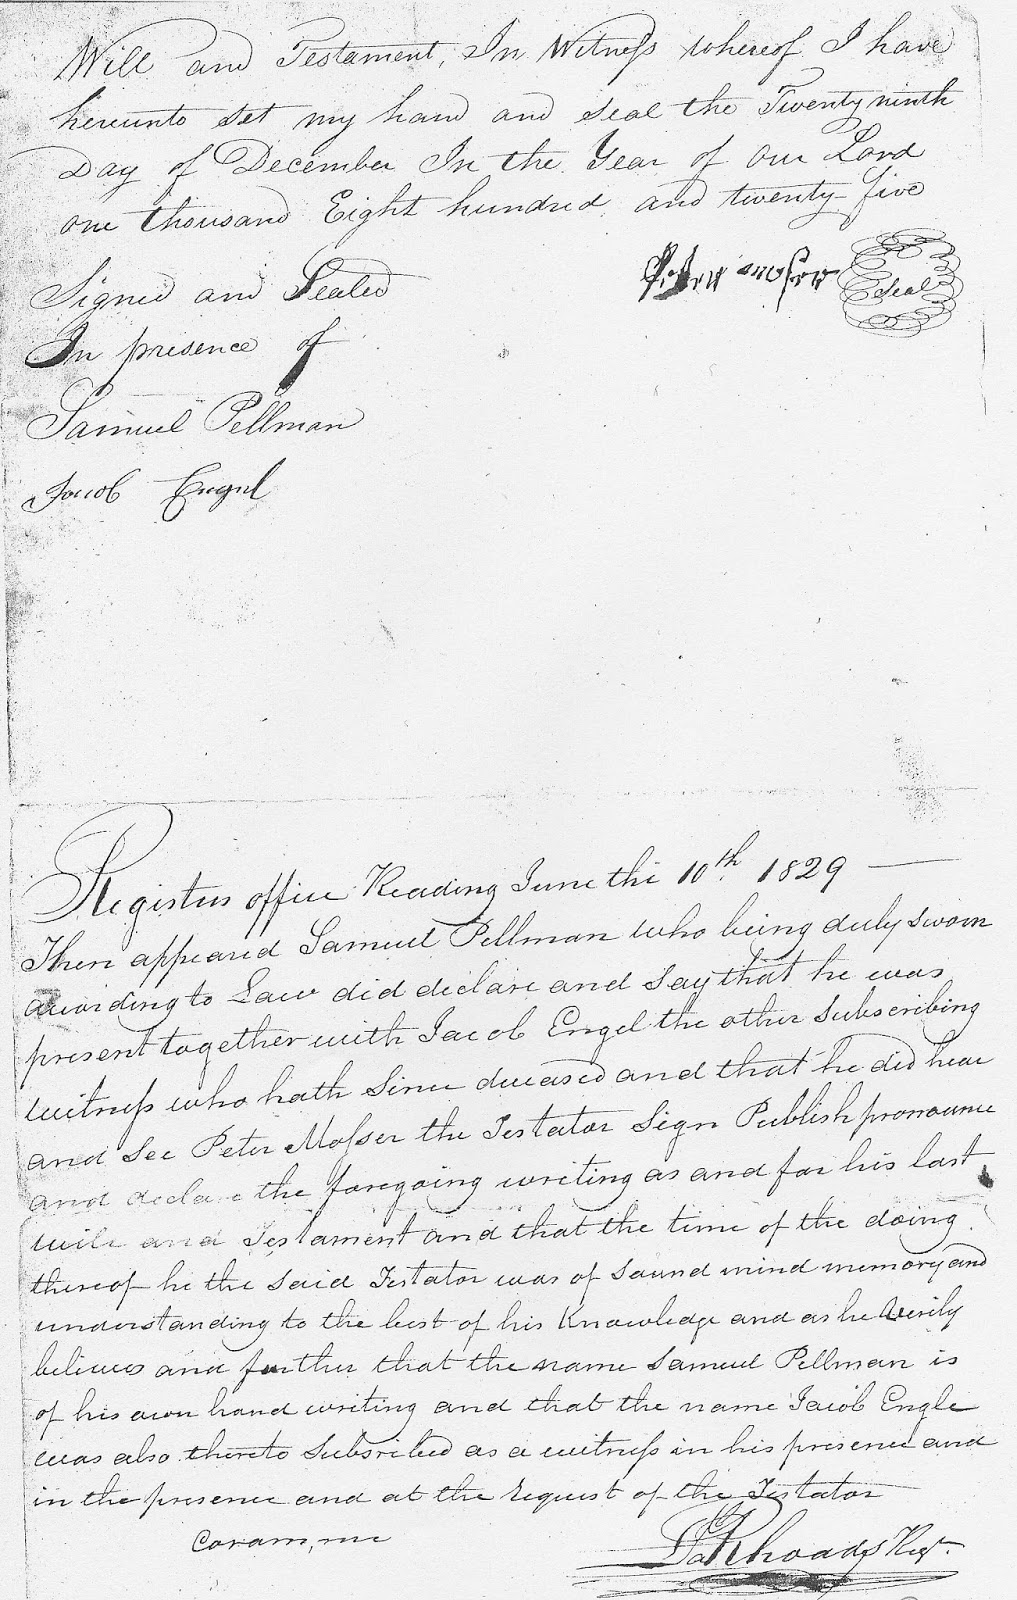 Will and Testament, In Witness whereof I have
hereunto set my hand and seal the Twenty ninth
Day of December In the Year of our Lord
one thousand Eight hundred and twenty five
Peter Mosser Seal
Signed and Sealed
In presence of
Samuel Pellman
Jacob Engel
Registers office Reading June the 10th 1829
Then appeared Samuel Pellman who being duly sworn
according to Law did declare and Say that he was
present together with Jacob Engel the other Subscribing
witness who hath Since deceased and that he did hear
and See Peter Mosser the Testator Sign Publish pronounce
and declare the foregoing writing as and for his last
will and Testament and that the time of the doing
thereof he the Said Testator was of Sound mind memory and
understanding to the best of his Knowledge and as he verily
believes and further that the name Samuel Pellman is
of his own hand writing and that the name Jacob Engle
was also thereto Subsribed as a witness in his presence and
in the presence and at the request of the Testator
Coram, me
Rhoads Regr.